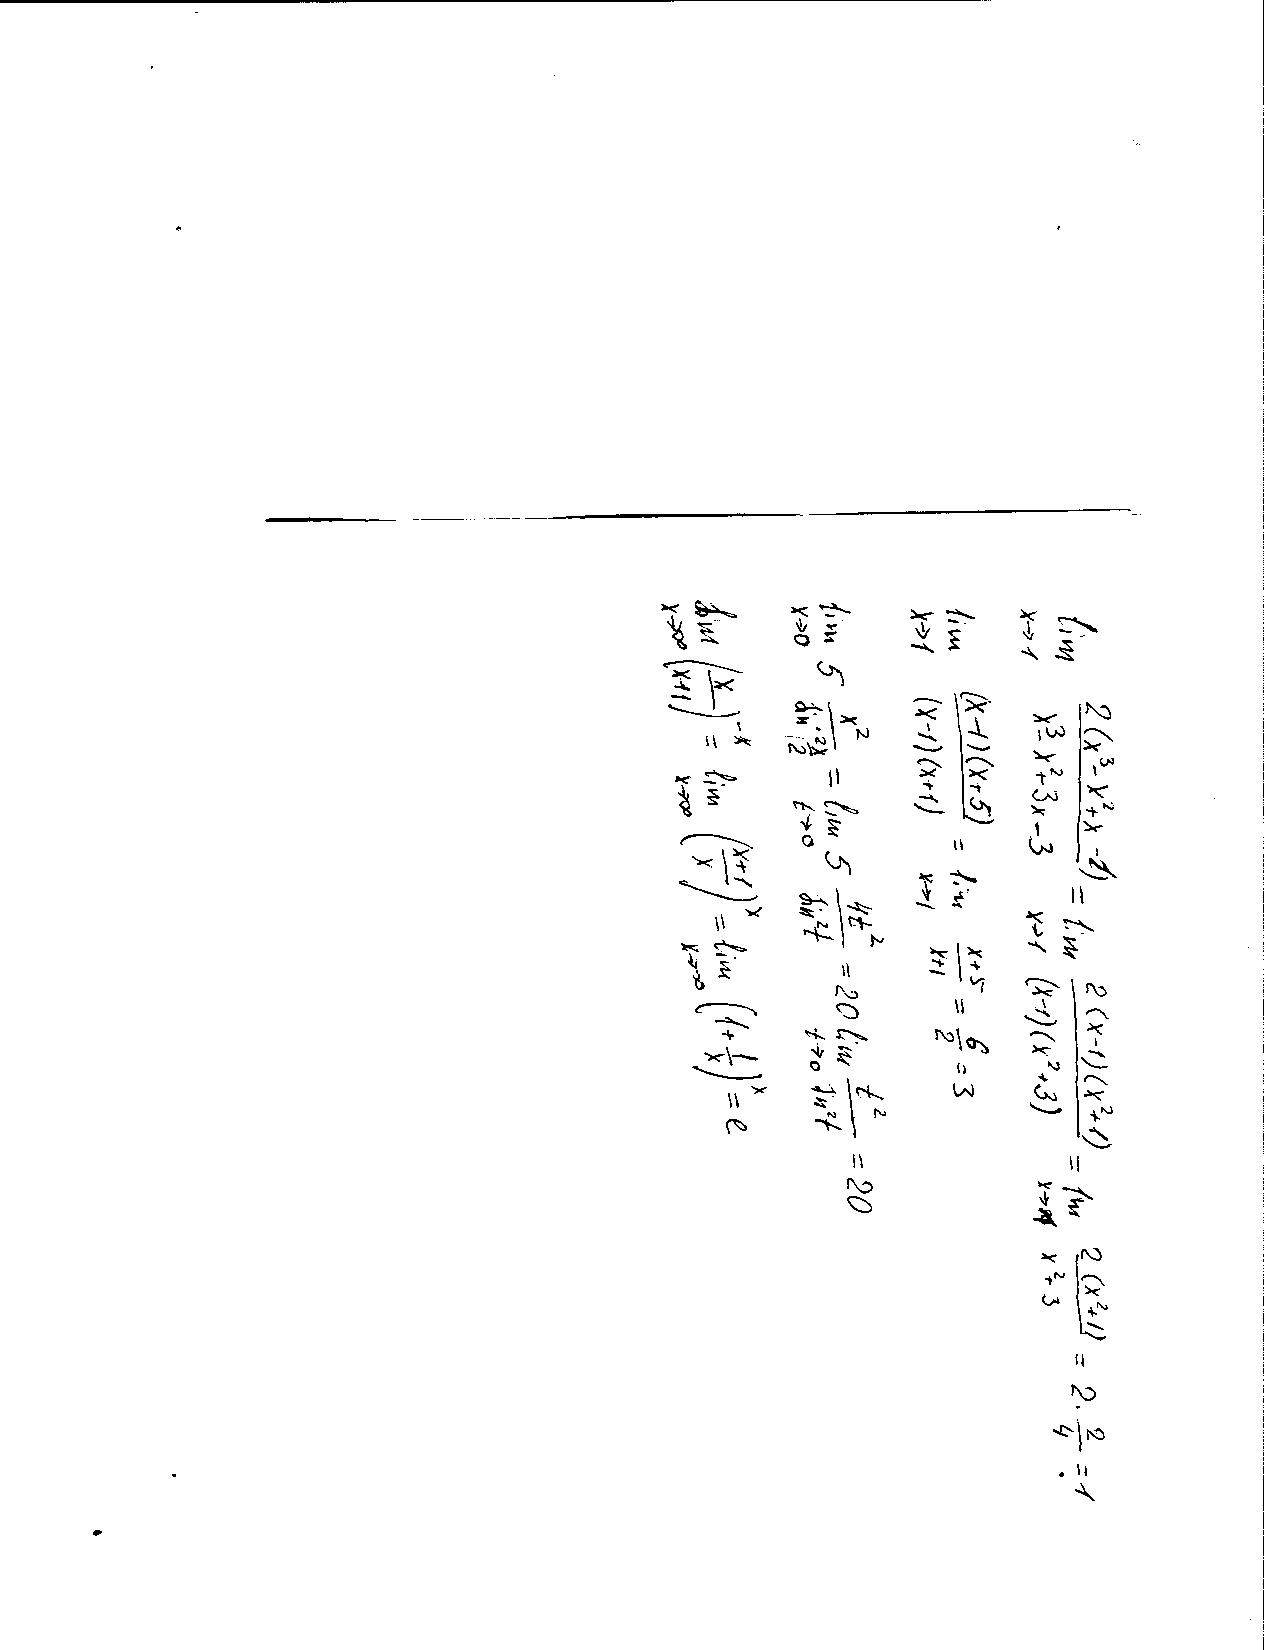 lim_{x→1} 2(x³-x²+x-1)/(x³-x²+3x-3) = lim_{x→1} 2(x-1)(x²+1)/((x-1)(x²+3)) = lim_{x→1} 2(x²+1)/(x²+3) = 2·2/4 = 1
lim_{x→1} (x-1)(x+5)/((x-1)(x+1)) = lim_{x→1} (x+5)/(x+1) = 6/2 = 3
lim_{x→0} 5 x²/(sin² x/2) = lim_{t→0} 5 4t²/(sin²t) = 20 lim_{t→0} t²/(sin²t) = 20
lim_{x→∞} (x/(x+1))^{-x} = lim_{x→∞} ((x+1)/x)^x = lim_{x→∞} (1+1/x)^x = e